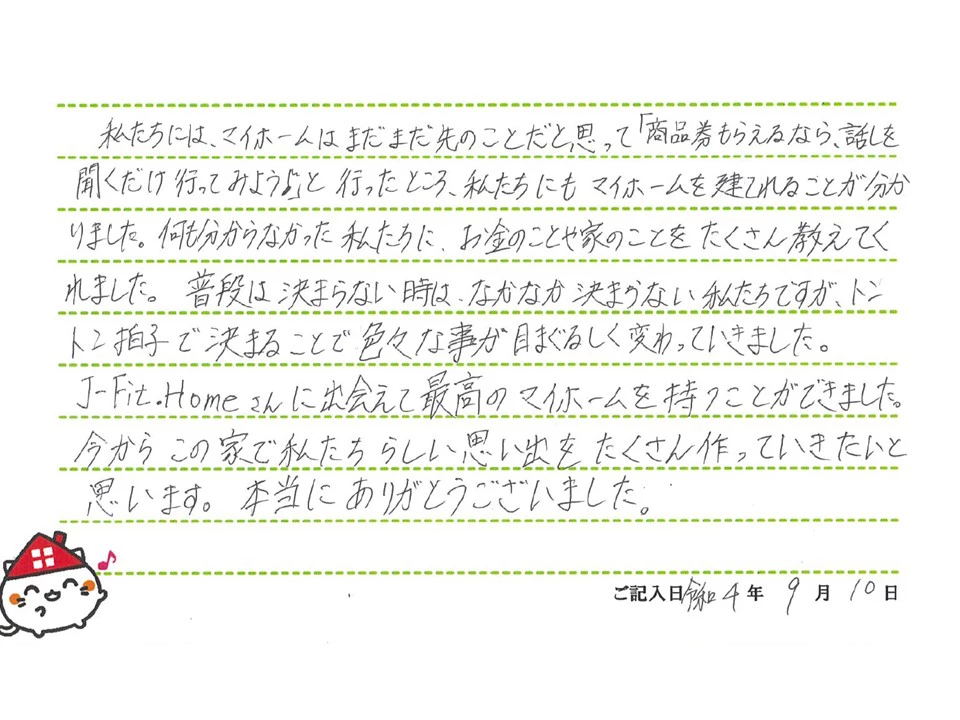 私たちには、マイホームはまだまだ先のことだと思って「商品券もらえるなら、話しを
聞くだけ行ってみよう♪」と行ったところ、私たちにもマイホームを建てれることが分か
りました。何も分からなかった私たちに、お金のことや家のことをたくさん教えてく
れました。普段は決まらない時は、なかなか決まらない私たちですが、トン
トン拍子で決まることで色々な事が目まぐるしく変わっていきました。
J-Fit.Homeさんに出会えて最高のマイホームを持つことができました。
今からこの家で私たちらしい思い出をたくさん作っていきたいと
思います。本当にありがとうございました。
ご記入日 令和4年9月10日